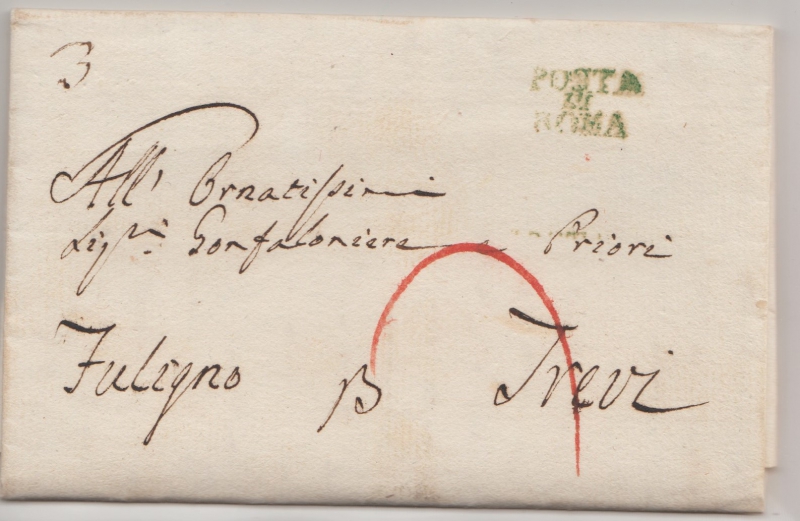 3
POSTA
DI
ROMA
All' Ornatissimi
Sig.ri Gonfaloniere e Priori
Fuligno P Trevi